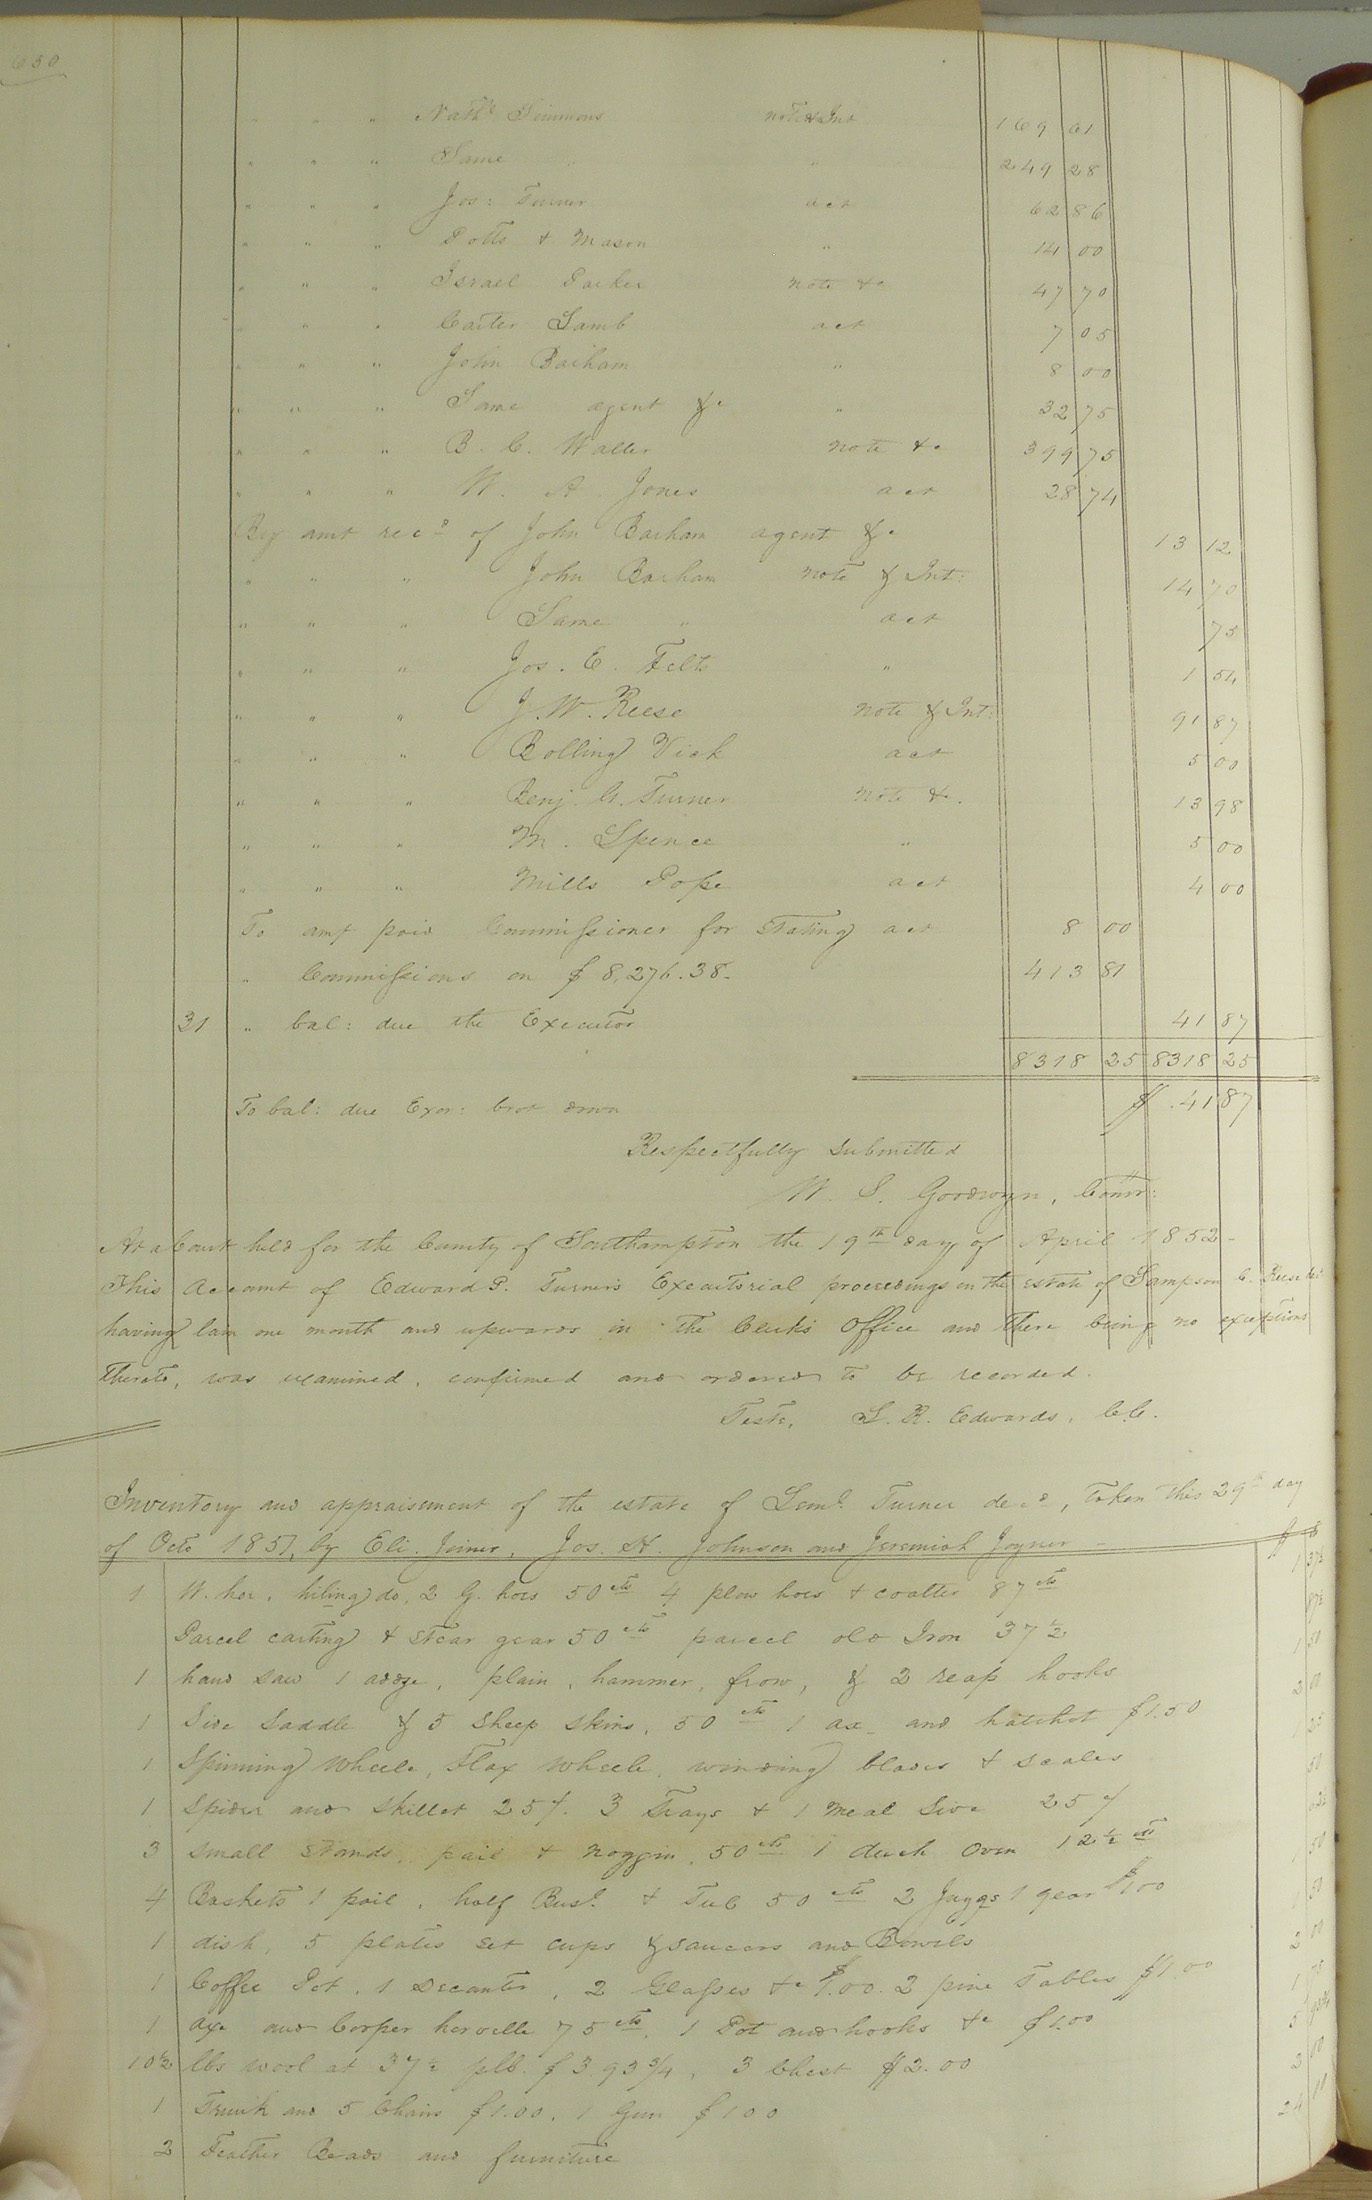 650
" " " Nathl Simmons note & Int 169 61
" " " Same " " 249 28
" " " Jos: Turner act 62 86
" " " Potts & Mason " 14 00
" " " Israel Parker note &c 47 70
" " " Carter Lamb act 7 05
" " " John Barham " 8 00
" " " Same agent &c " 32 75
" " " B. C. Waller note &c 399 75
" " " W. A. Jones act 28 74
By amt recd of John Barham agent &c 13 12
" " " John Barham note & Int: 14 70
" " " Same " act 75
" " " Jos. E. Felts " 1 54
" " " J. W. Reese note & Int: 91 87
" " " Bolling Vick act 5 00
" " " Benj. G. Turner note &c. 13 98
" " " M. Spence " 5 00
" " " Mills Pope act 4 00
To amt paid Commissioner for stating act 8 00
" Commissions on $ 8,276.38. 413 81
31 " bal: due the Executor 41 87
8318 25 8318 25
To bal: due Exor: brot down $ 41 87
Respectfully submitted
W. S. Goodwyn, Comr:
At a Court held for the County of Southampton the 19th day of April 1852
This account of Edward P. Turner's Executorial proceedings on the estate of Sampson C. Reese decd
having lain one month and upwards in the Clerk's Office and there being no exceptions
thereto, was examined, confirmed and ordered to be recorded.
Teste, L. R. Edwards, C.C.
Inventory and appraisment of the estate of Leml. Turner decd, taken this 29th day
of Octo 1851, by Eli Joiner, Jos. H. Johnson and Jeremiah Joyner $ ¢
1 W. hoe, hiling do, 2 G. hoes 50 cts 4 plow hoes & coalter 87 cts 1 37½
Parcel casting & stear gear 50 cts parcel old Iron 37½ 87½
1 hand saw 1 adze, plain, hammer, frow, & 2 reap hooks 1 50
1 Side Saddle & 5 Sheep skins, 50 cts 1 ax and hatchet $1.50 2 00
1 Spinning Wheele, Flax Wheele, winding blades & scales 1 25
1 Spider and skillet 25¢. 3 Trays & 1 meal sive 25¢ 50
3 small stands, pail & noggin, 50 cts 1 duch oven 12½ cts 62½
4 Baskets 1 pail, half Busl. & Tub 50 cts 2 Juggs 1 gear $1.00 1 50
1 dish, 5 plates set cups & saucers and Bowels 1 50
1 Coffee Pot, 1 Decanter, 2 Glasses &c $1.00. 2 pine Tables $1.00 2 00
1 axe and Cooper 75 cts, 1 Pot and hooks &c $1.00 1 75
10½ lbs wool at 37½ plb. $3.93¾, 3 Chest $2.00 5 93¾
1 Trunk and 5 Chairs $1.00. 1 Gun $1 00 2 00
2 Feather Beads and furniture 24 00